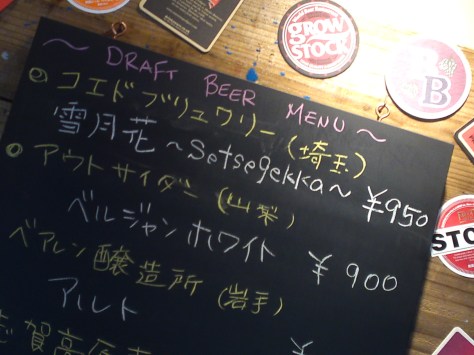 ～ DRAFT BEER MENU ～
コエドブリュワリー (埼玉)
雪月花 ～Setsegekka～ ¥950
アウトサイダー (山梨)
ベルジャンホワイト ¥900
ベアレン醸造所 (岩手)
アルト ¥
志賀高原
GROW STOCK
B
STO